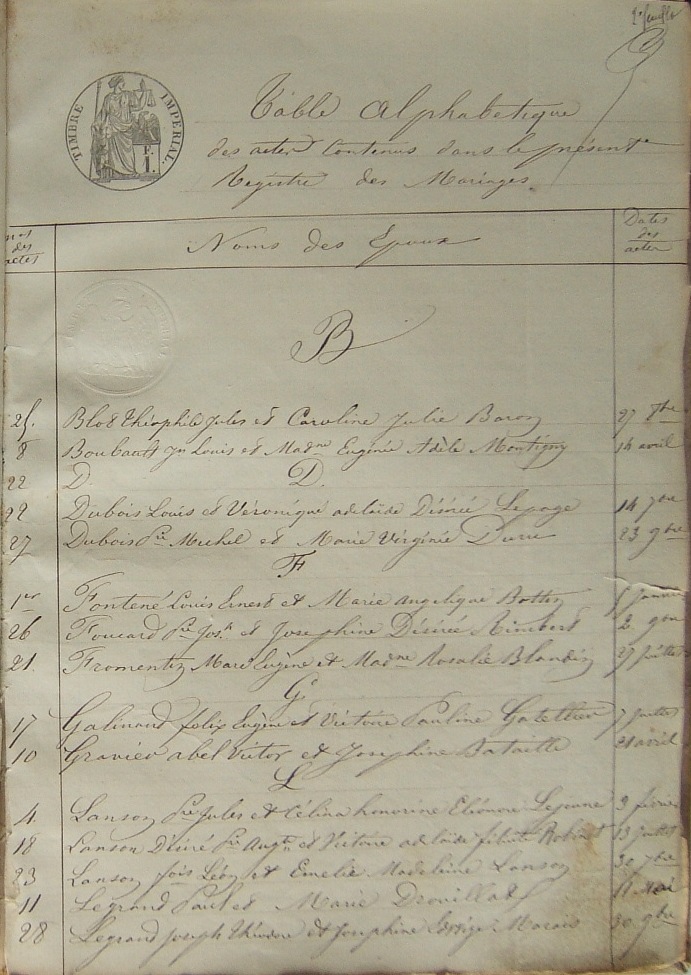 2e feuillet
TIMBRE IMPERIAL
F.
1.
Table Alphabetique
des actes Contenus dans le présent
Registre des Mariages
nos des actes
Noms des Epoux
Dates des actes
B
25. Blot théophile Jules et Caroline Julie Baron 27 8bre
8 Boubault Jn Louis et Madne Eugénie Adèle Montigny 14 avril
22 D. D.
22 Dubois Louis et Véronique adelaïde Désirée Lepage 14 7bre
27 Dubois Pre Michel et Marie Virginie 23 9bre
F
1er Fontené Louis Ernest et Marie angelique janvier
26 Foucard Pre Josh et Josephine Désirée Rimbert 2 9bre
21. Fromentin Marc Eugène et Madne Rosalie Blondin 27 juillet
G
17 Galinand felix Eugène et Victoire Pauline Gatellier 7 juillet
10 Gravier abel Victor et Josephine Bataille 21 avril
L
4. Lanson Pre Jules et Célina honorine Eléonore Lejeune 9 février
18 Lanson Désiré Pre Augtn et Victoire adelaïde Robinet 13 juillet
23 Lanson fois Léon et Emelie Madeleine Lanson 30 7bre
11 Legrand Paul et Marie Drouillat 11 Mai
28 Legrand Joseph théodore et Josephine Marais 30 9bre